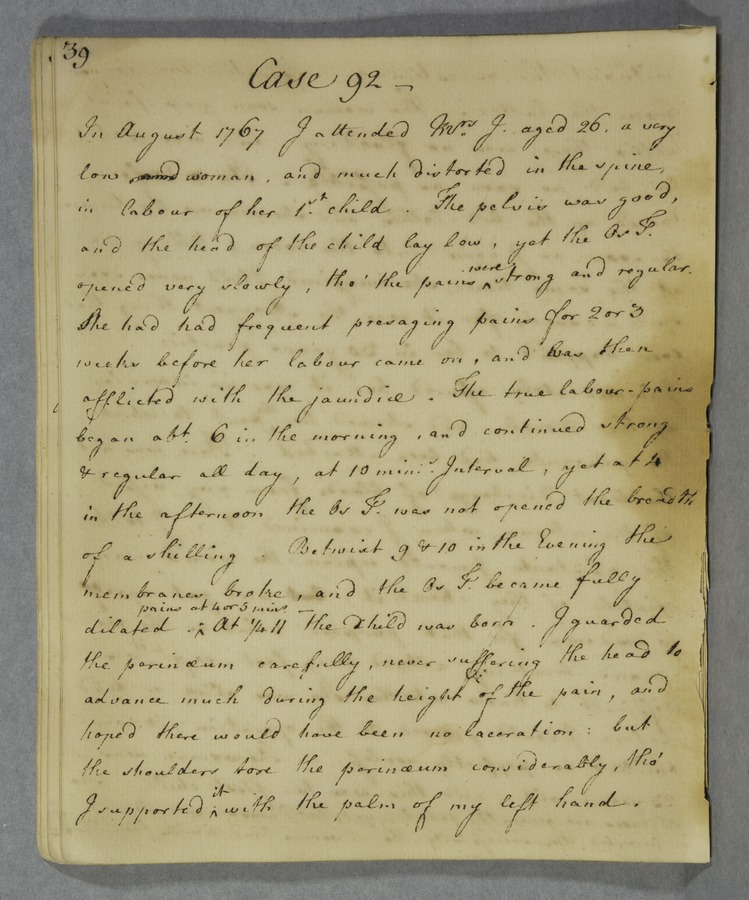 39
Case 92 —
In August 1767 I attended Mrs J. aged 26. a very
low woman, and much distorted in the spine,
in labour of her 1st child. The pelvis was good,
and the head of the child lay low, yet the Os T.
opened very slowly, tho' the pains ^were strong and regular.
She had had frequent presaging pains for 2 or 3
weeks before her labour came on, and was then
afflicted with the jaundice. The true labour-pains
began abt. 6 in the morning, and continued strong
& regular all day, at 10 mins. Interval, yet at 4
in the afternoon the Os T. was not opened the breadth
of a shilling. Betwixt 9 & 10 in the Evening the
membranes broke, and the Os T. became fully
pains at 4 or 5 mins. —
dilated. ^ At 1/4 11 the Child was born. I guarded
the perinæum carefully, never suffering the head to
advance much during the height of the pain, and
hoped there would have been no laceration: but
the shoulders tore the perinæum considerably, tho'
I supported ^it with the palm of my left hand.